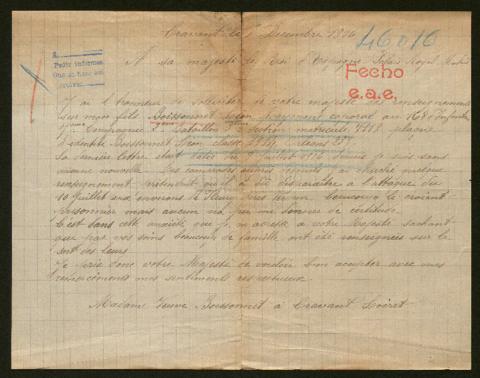 Cravant le Décembre 1916
46016
A sa majesté le Roi d'Espagne Palais Royal Madrid
Pedir informes
Fecho
e.a.e.
J'ai l'honneur de solliciter de votre majesté des renseignements
sur mon fils Boissonnet Léon caporal au 168e Infanterie
Compagnie Bataillon Section matricule plaque
d'identité Boissonnet Léon classe 1914 Orléans
La dernière lettre était datée du juillet 1916 depuis je suis sans
aucune nouvelle Des camarades
renseignement prétendent qu'il a été disparaître à l'attaque du
10 juillet aux environs de Fleury beaucoup le croient
prisonnier mais aucun n'a pu me donner de certitude
C'est dans cette anxiété que je m'adresse à votre Majesté sachant
que par vos soins beaucoup de famille ont été renseignées sur le
sort des leurs
Je prie donc votre Majesté de vouloir bien accepter avec mes
remerciements mes sentiments respectueux
Madame Veuve Boissonnet à Cravant Loiret